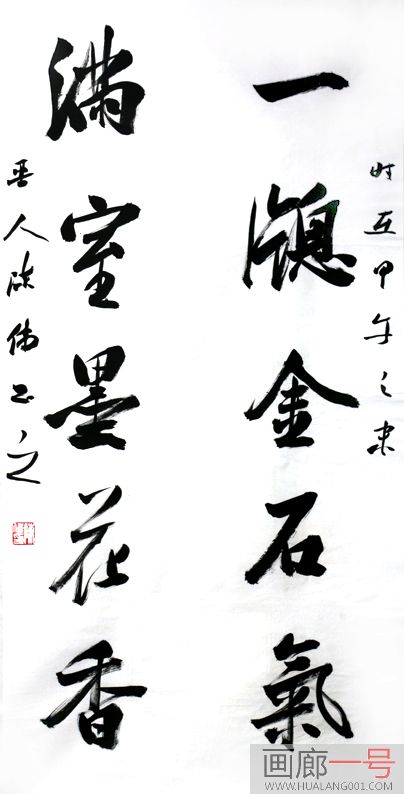 时在甲午之
一牕金石氣
滿室墨花香
晋人陈伟书之
画廊一号
WWW.HUALANG001.COM